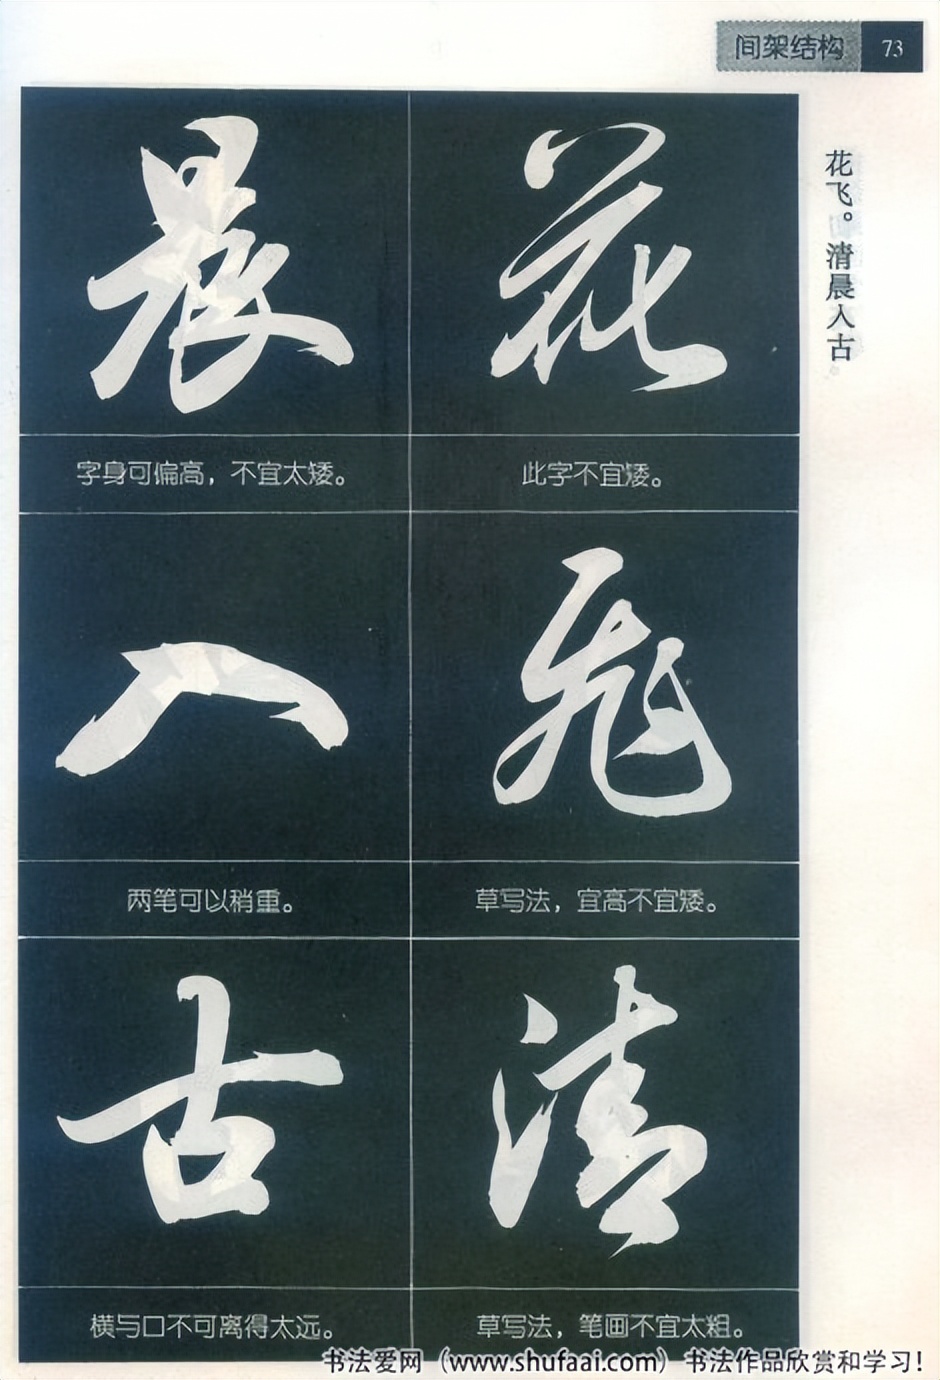 间架结构 73
花飞。清晨入古
花
此字不宜矮。
飞
草写法，宜高不宜矮。
清
草写法，笔画不宜太粗。
晨
字身可偏高，不宜太矮。
入
两笔可以稍重。
古
横与口不可离得太远。
书法爱网（www.shufaai.com）书法作品欣赏和学习！